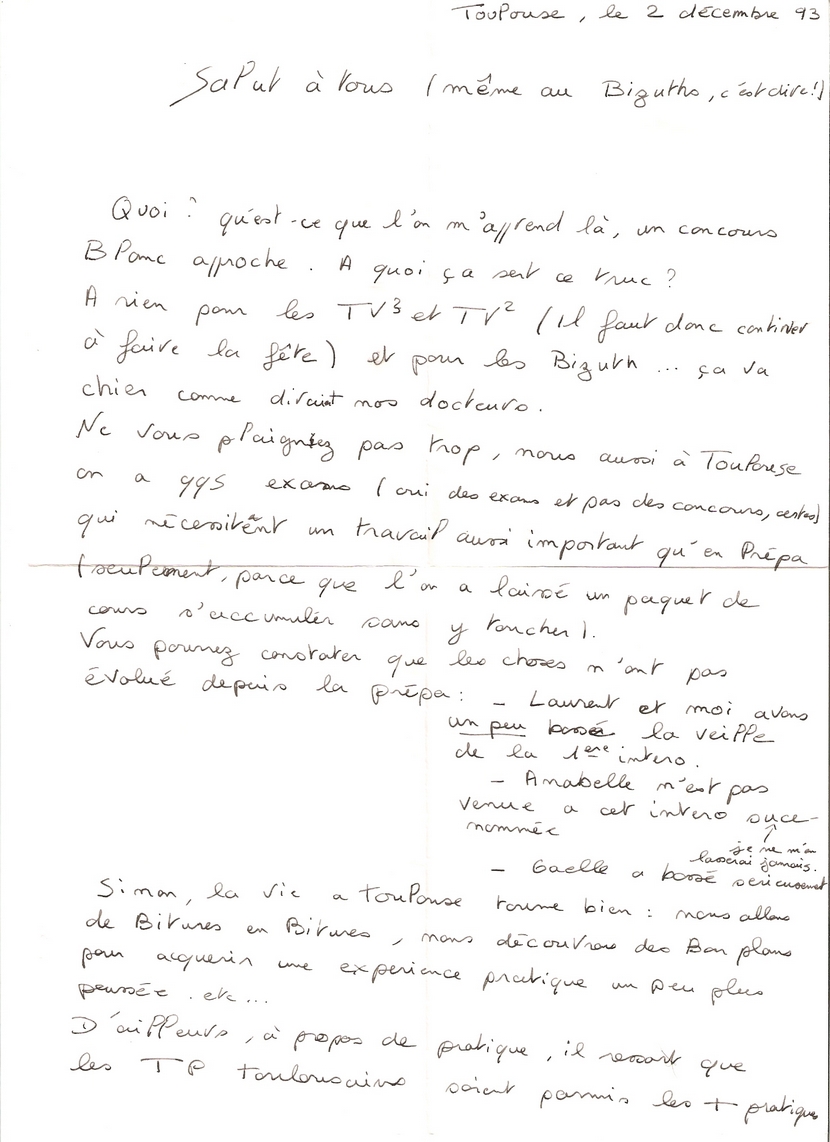 Toulouse, le 2 décembre 93
Salut à tous (même au Bizuths, c'est dire!)
Quoi ? qu'est-ce que l'on m'apprend là, un concours
Blanc approche. A quoi ça sert ce truc ?
A rien pour les TV3 et TV2 (Il faut donc continuer
à faire la fête) et pour les Bizuth ... ça va
chier comme diraient nos docteurs.
Ne vous plaignez pas trop, nous aussi à Toulouse
on a qqs exams (oui des exams et pas des concours, certes)
qui nécessitent un travail aussi important qu'en Prépa
(seulement, parce que l'on a laissé un paquet de
cours s'accumuler sans y toucher).
Vous pourrez constater que les choses n'ont pas
évolué depuis la prépa : - Laurent et moi avons
un peu bossé la veille
de la 1ere intero.
- Anabelle n'est pas
venue a cet intero suce-
nommée
je ne m'en
lasserai jamais.
- Gaelle a bossé serieusement
Sinon, la vie a Toulouse tourne bien : nous allons
de Bitures en Bitures, nous découvrons des Bon plans
pour acquerir une experience pratique un peu plus
poussée. etc...
D'ailleurs, à propos de pratique, il ressort que
les TP toulousains soient parmis les + pratiques